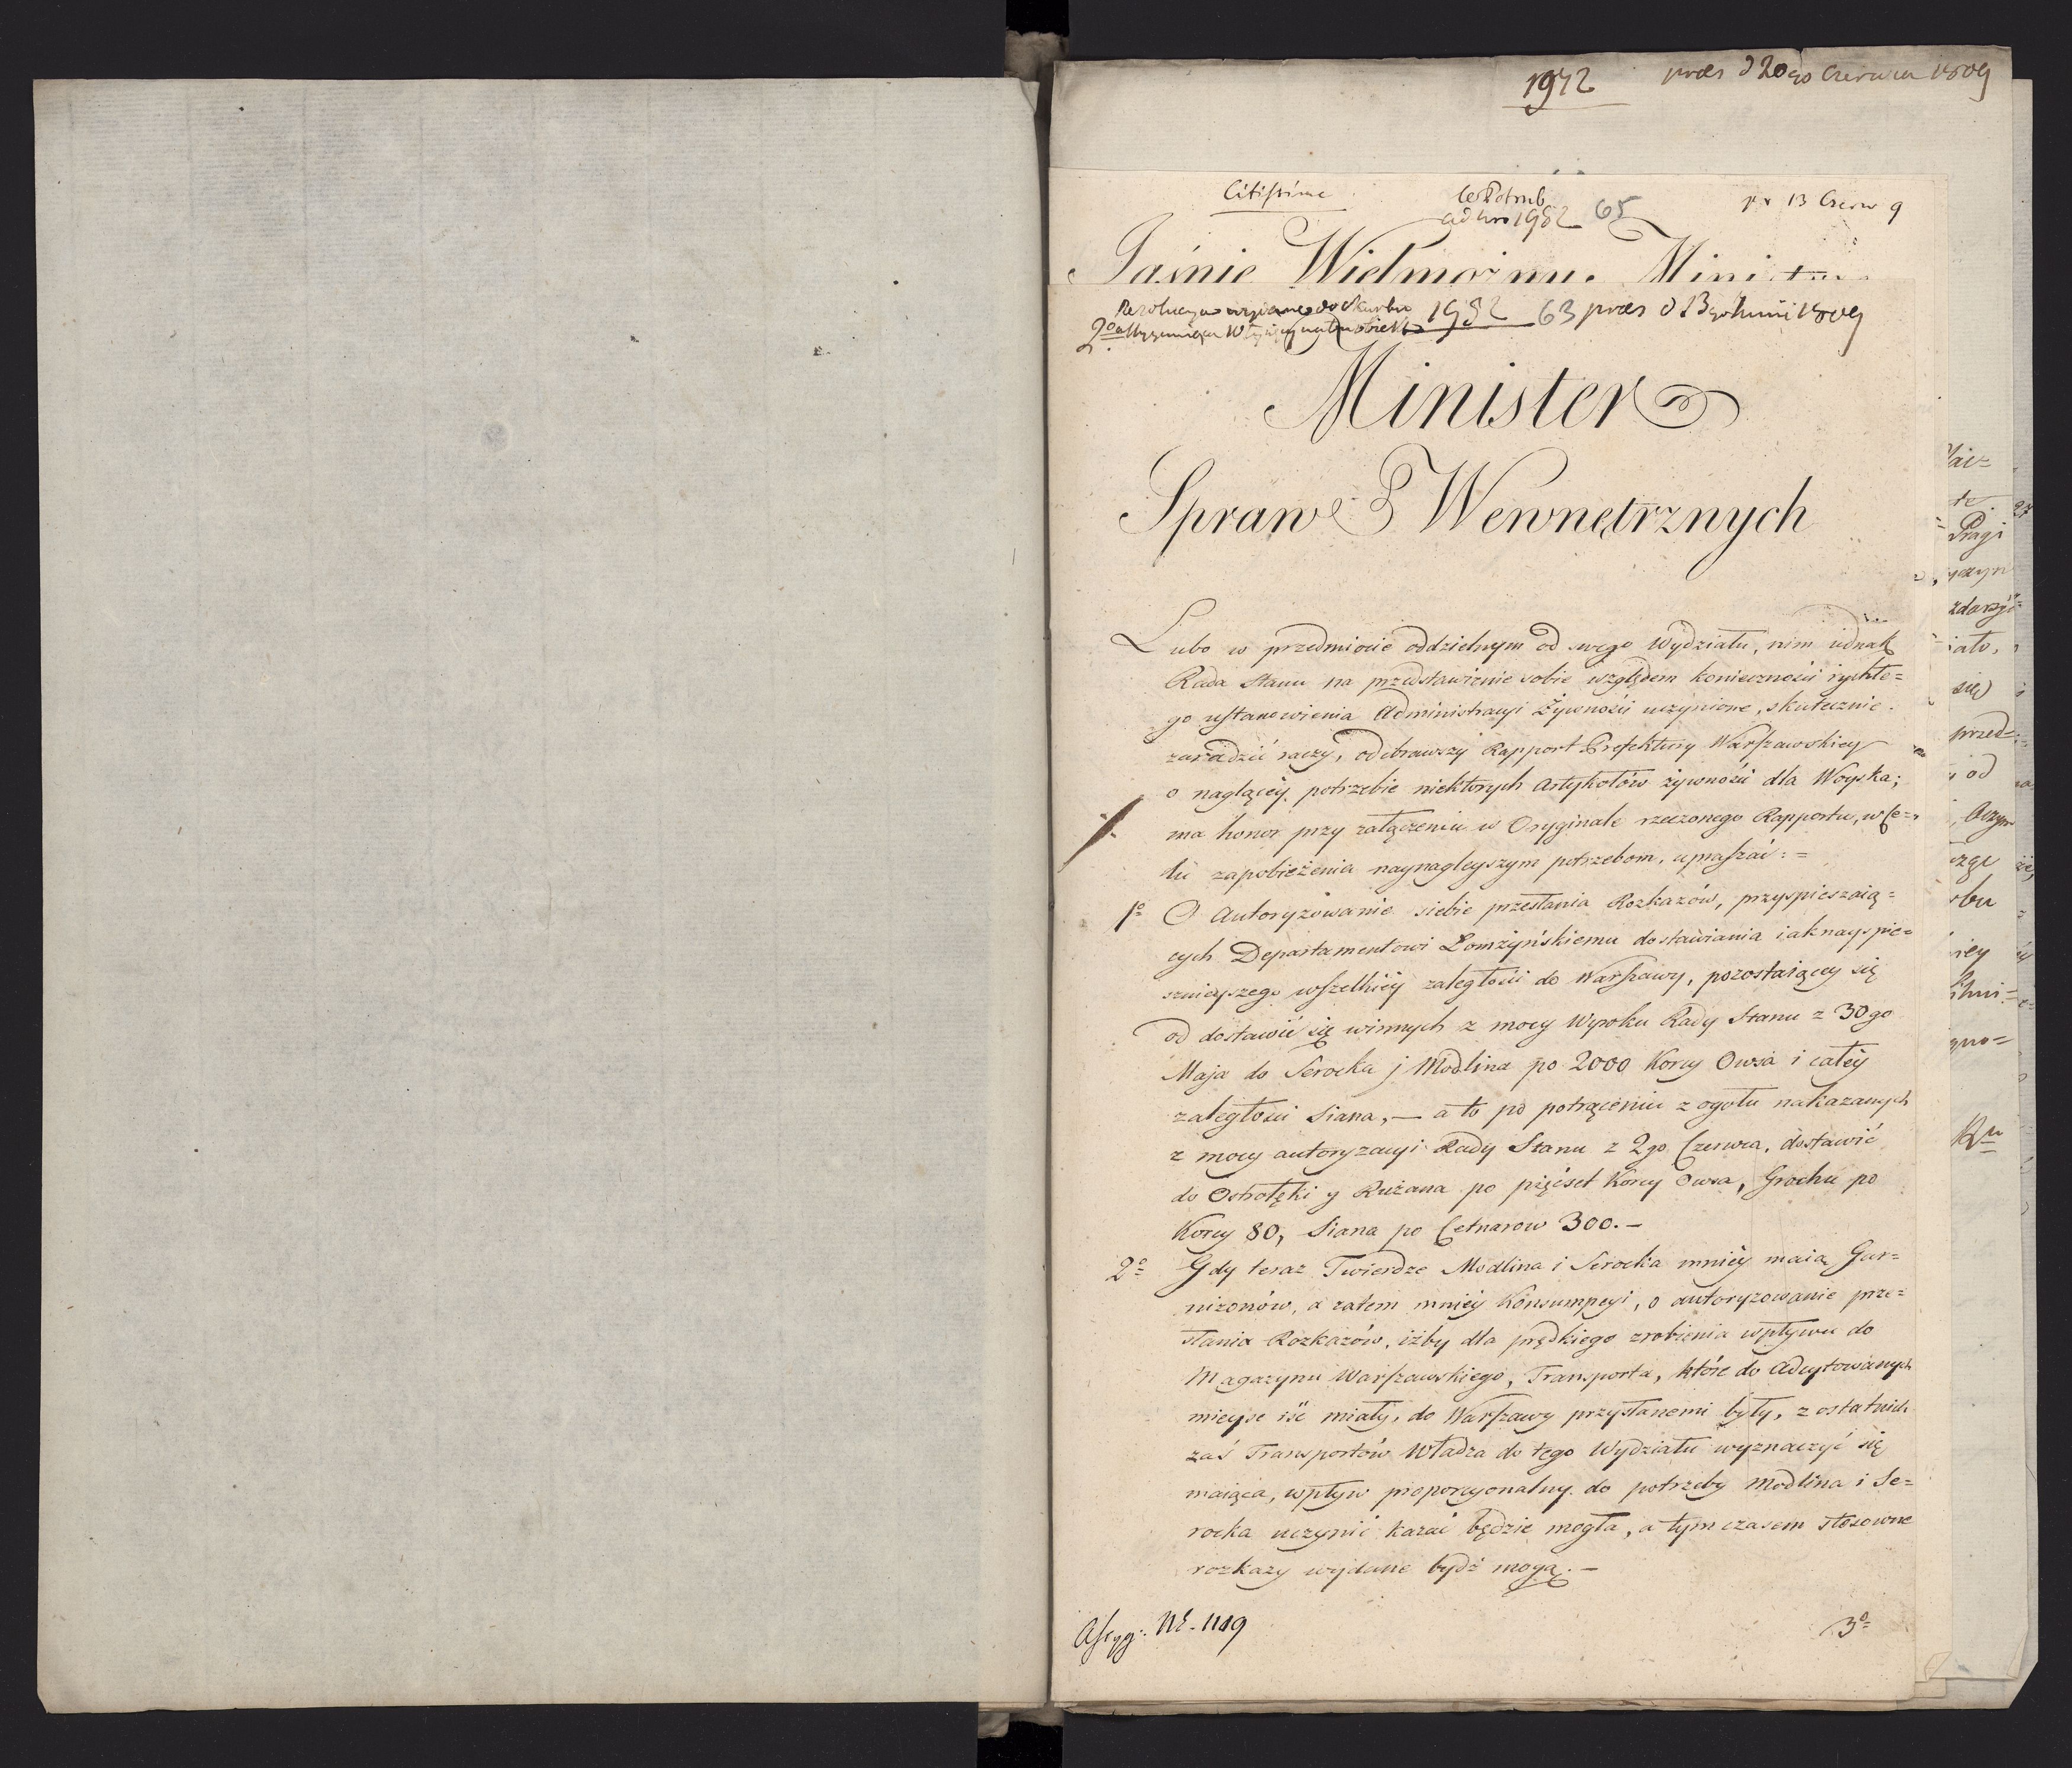 1972 præs d 20go Czerwca 1809
Citissime
ad Nro 1982 65 pr 13 Czerw 9
Jaśnie Wielmożnu Ministr
1982 63 præs d 13go Junii 1809
Minister
Spraw Wewnętrznych
Lubo w przedmiocie oddzielnym od swego Wydziału, nim iednak
Rada Stanu na przedstawienie sobie względem konieczności rychłe=
go ustanowienia Administracyi Żywności uczynione, skutecznie
zaradzić raczy, odebrawszy Rapport Prefektury Warszawskiey
o naglącéy potrzebie niektorych Artykołów żywności dla Woyska;
ma honor przy załączeniu w Oryginale rzeczonego Rapportu, w Ce=
lu zapobieżenia naynagleyszym potrzebom, upraszać: =
1o O Autoryzowanie siebie przesłania Rozkazów, przyspieszaią=
cych Departamentowi Łomżyńskiemu dostawiania iak nayspie=
sznieyszego wszelkiéy zaległości do Warszawy, pozostaiącey się
od dostawić się winnych z mocy Wyroku Rady Stanu z 30go
Maja do Serocka j Modlina po 2000 Korcy Owsa i całéy
zaległości Siana, — a to po potrąceniu z ogołu nakazanych
z mocy autoryzacyi Rady Stanu z 2go Czerwca, dostawić
do Ostrołęki y Rużana po pięćset Korcy Owsa, Grochu po
Korcy 80, Siana po Cetnarow 300. —
2o Gdy teraz Twierdze Modlina i Serocka mniéy maią Gar=
nizonów, a zatem mniéy Konsumpcyi, o autoryzowanie prze=
słania Rozkazów, iżby dla prędkiego zrobienia wpływu do
Magazynu Warszawskiego, Transporta, które do Adcytowanych
mieysc iść miały, do Warszawy przysłanemi były, z ostatnich
zaś Transportów Władza do tego Wydziału wyznaczyć się
maiąca, wpływ proporcyonalny do potrzeby Modlina i Se=
rocka uczynić kazać będzie mogła, a tym czasem stosowne
rozkazy wydane bydź mogą. —
Nr. 1119
3o
Pragi
się
przed=
od